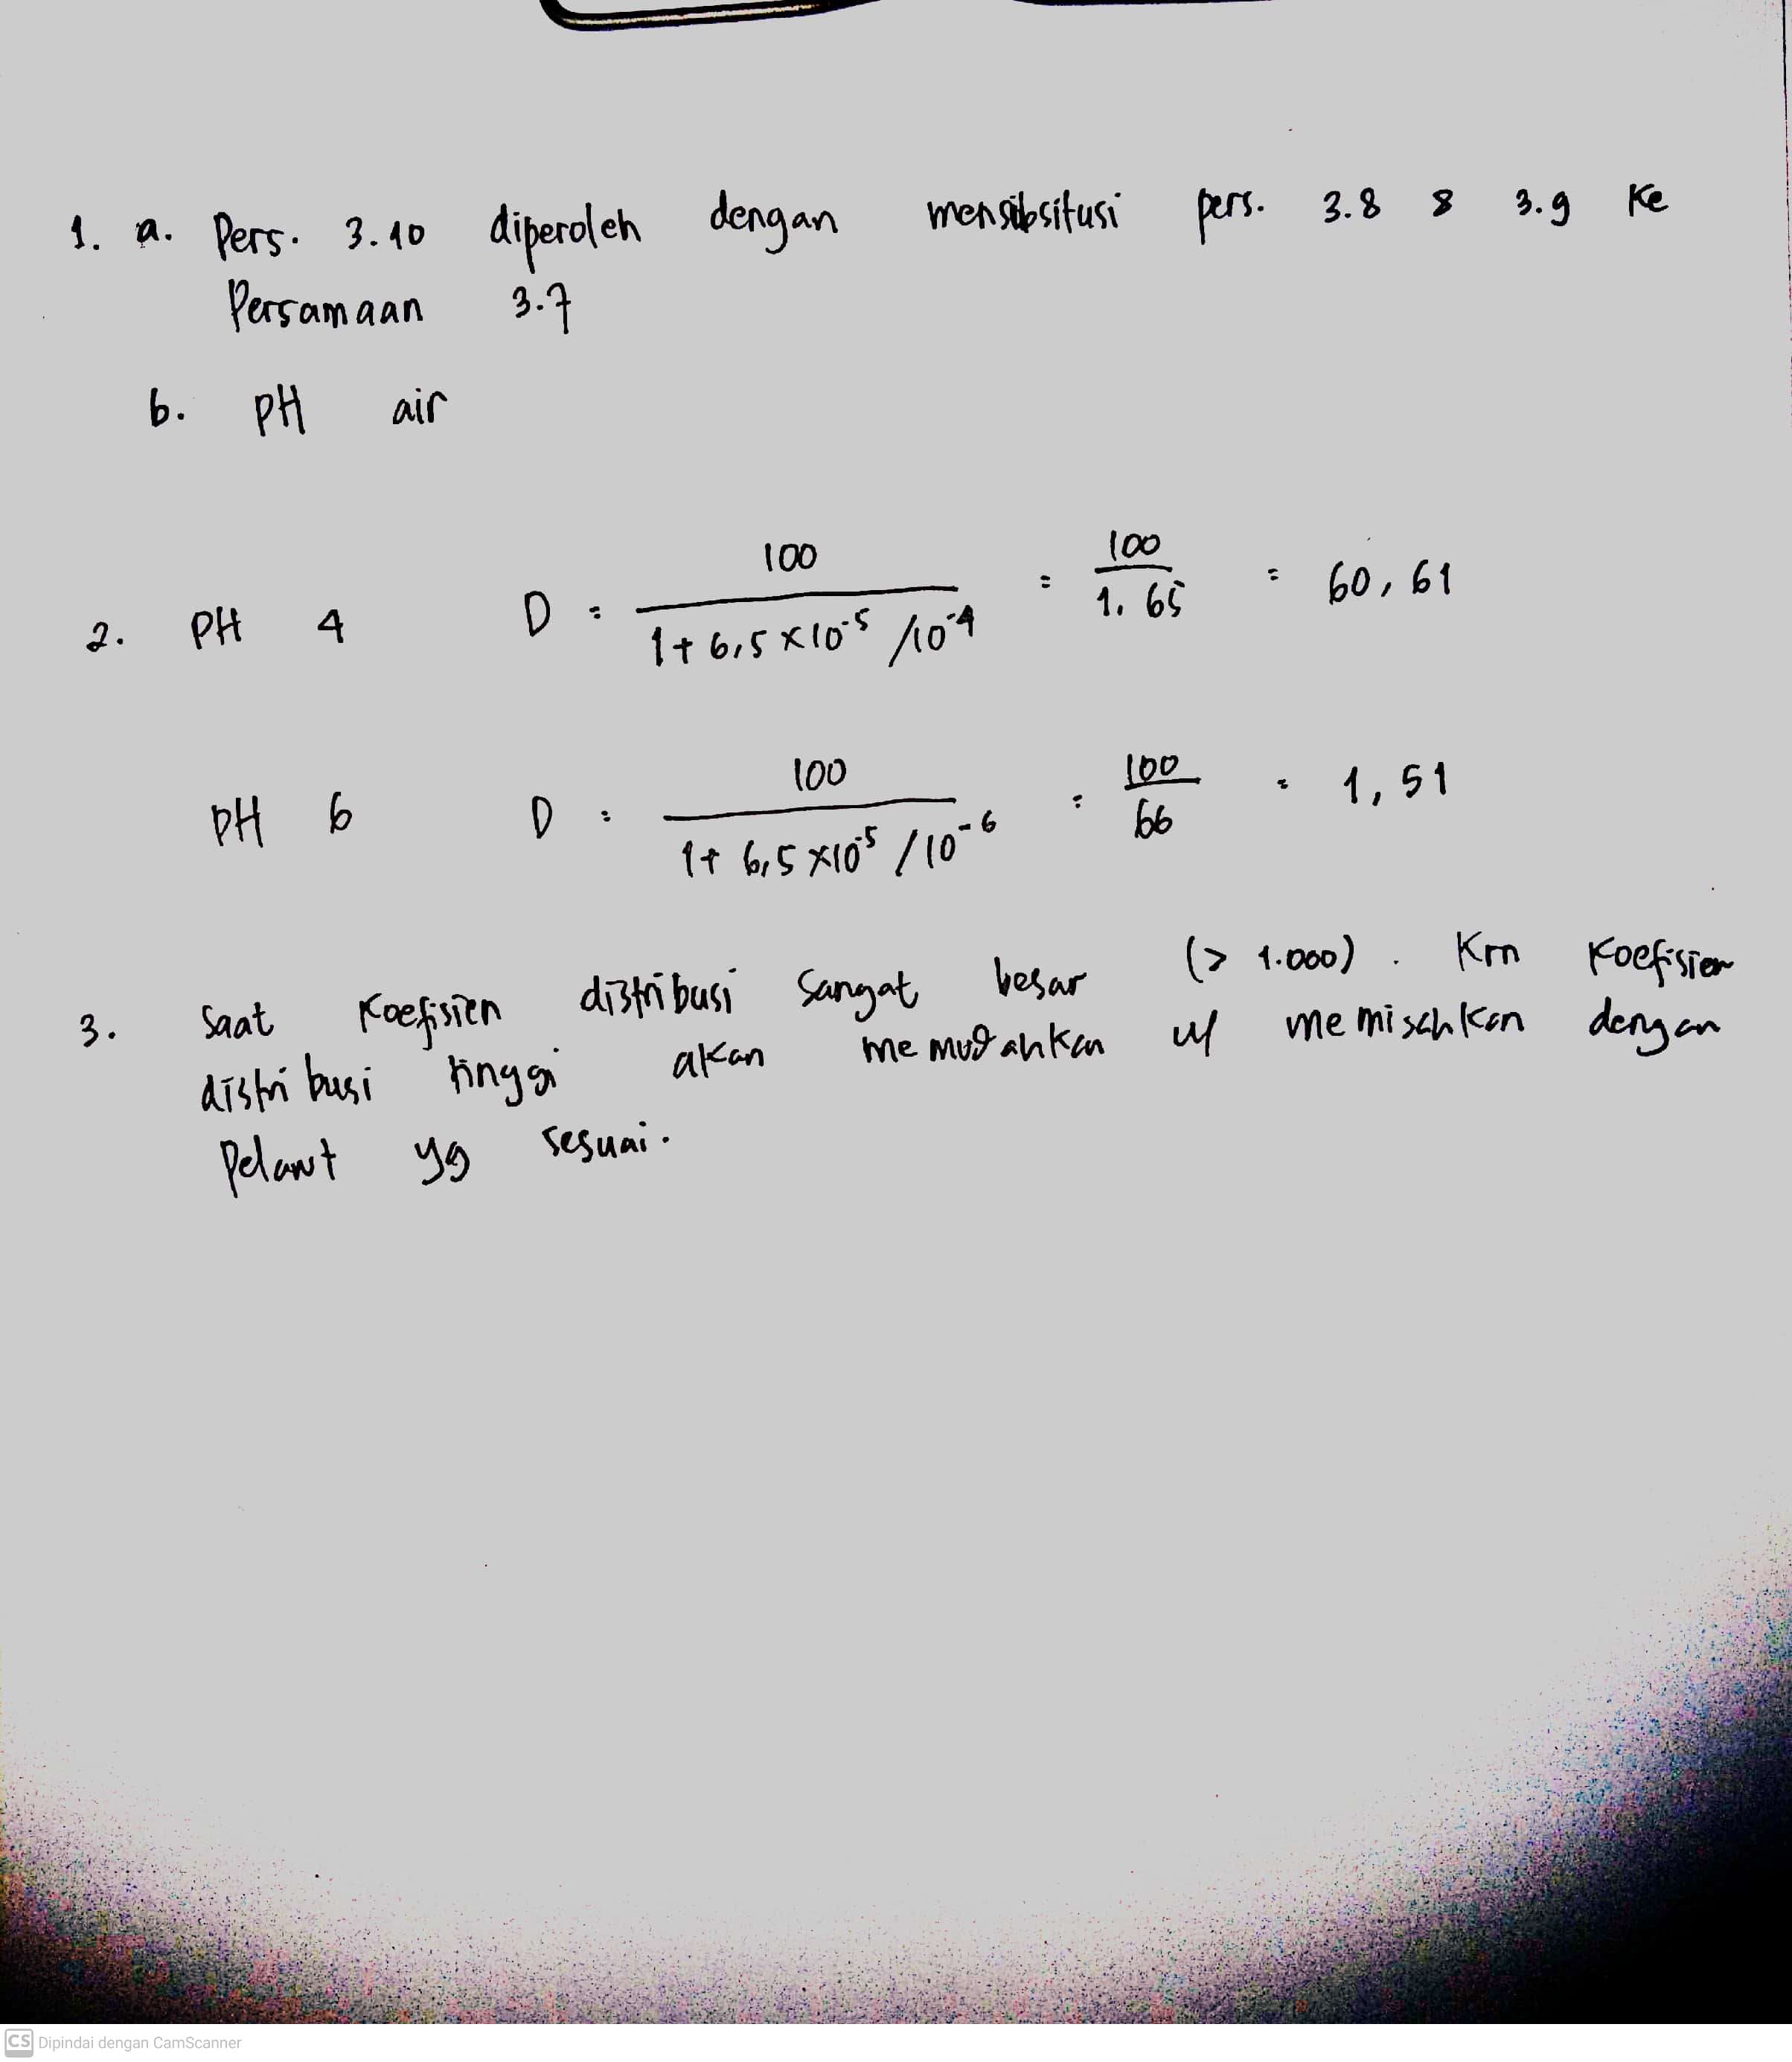 1. a. Pers. 3.10 diperoleh dengan mensibsitusi pers. 3.8 & 3.9 ke
Persamaan 3.7
b. pH air
2. PH 4 D = 100 / 1 + 6,5 x 10^-5 / 10^-4 = 100 / 1.65 = 60,61
pH 6 D = 100 / 1 + 6,5 x 10^-5 / 10^-6 = 100 / 66 = 1,51
3. Saat Koefisien distribusi sangat besar (> 1.000). Krn Koefisien
distribusi tinggi akan memudahkan u/ memisahkan dengan
Pelarut yg sesuai.
CS Dipindai dengan CamScanner